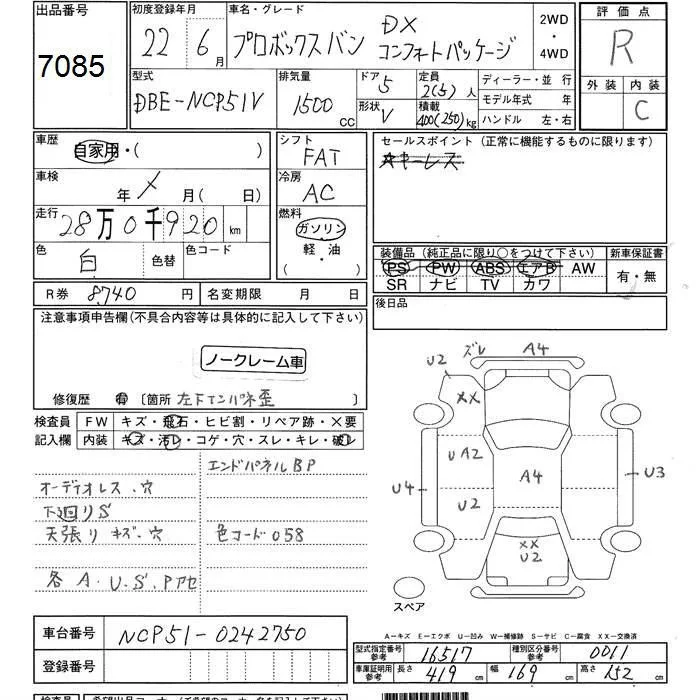 出品番号
7085
初度登録年月
22年 6月
車名・グレード
プロボックスバン DX コンフォートパッケージ
2WD・4WD
評価点
R
外装 内装
C
型式
DBE-NCP51V
排気量
1500 CC
ドア 5
形状 V
定員 2(5)人
積載 400(250)kg
ディーラー・並行
モデル年式 年
ハンドル 左・右
車歴
自家用・( )
車検
年 × 月(日)
走行
28万0千920 km
色
白
色替
色コード
シフト
FAT
冷房
AC
燃料
ガソリン
軽・油
( ・ )
セールスポイント (正常に機能するものに限ります)
キーレス
装備品 (純正品に限り○をつけて下さい)
PS PW ABS エアB AW
SR ナビ TV カワ
新車保証書
有・無
R券 8740 円
名変期限 月 日
後日品
注意事項申告欄(不具合内容等は具体的に記入して下さい)
ノークレーム車
修復歴 有 〔箇所 左F インパネ歪
検査員記入欄
FW キズ・飛石・ヒビ割・リペア跡・×要
内装 キズ・汚レ・コゲ・穴・スレ・キレ・破レ
エンドパネルBP
オーディオレス、穴
下廻りS
天張り キズ・穴
色コード 058
各A、U、S、Pアセ
ズレ A4
U2
XX
UA2
A4
U4
U3
U2
XX
U2
スペア
A—キズ E—エクボ U—凹み W—補修跡 S—サビ C—腐食 XX—交換済
車台番号
NCP51-0242750
登録番号
型式指定参考 16517
種別区分番号参考 0011
車庫証明用参考 長さ 419 cm 幅 169 cm 高さ 152 cm